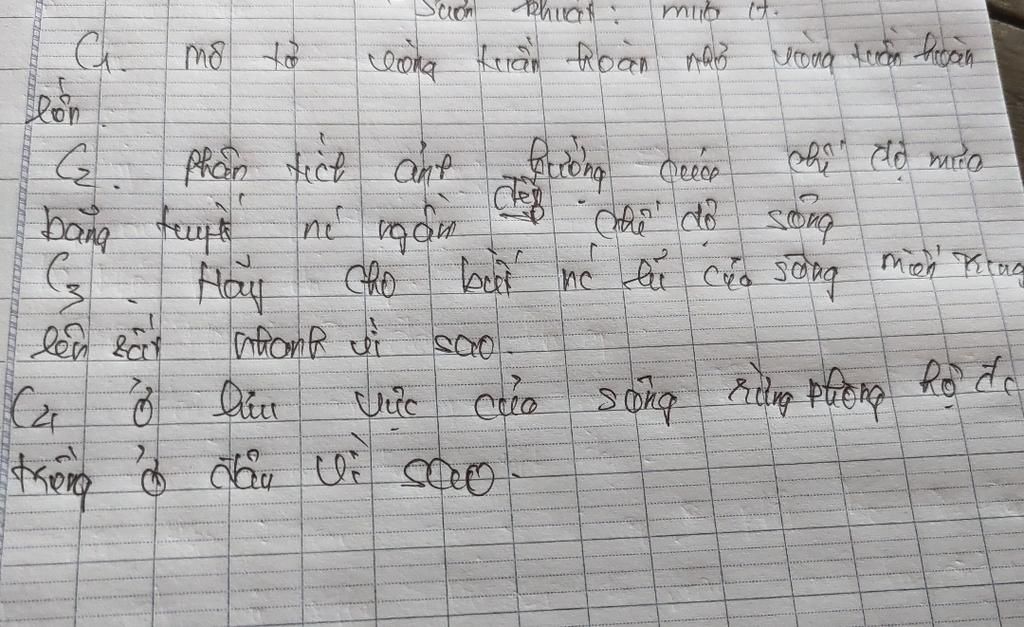 C1. mô tả vòng tuần hoàn nhỏ vòng tuần hoàn
lớn.
C2. Phân tích ảnh hưởng chế độ mưa
băng tuyết nc ngầm đến chế độ sông
C3. Hãy cho biết nc lũ của sông miền trung
lên rất nhanh vì sao.
C4 ở lưu vực của sông rừng phòng hộ đc
trồng ở đâu vì sao.